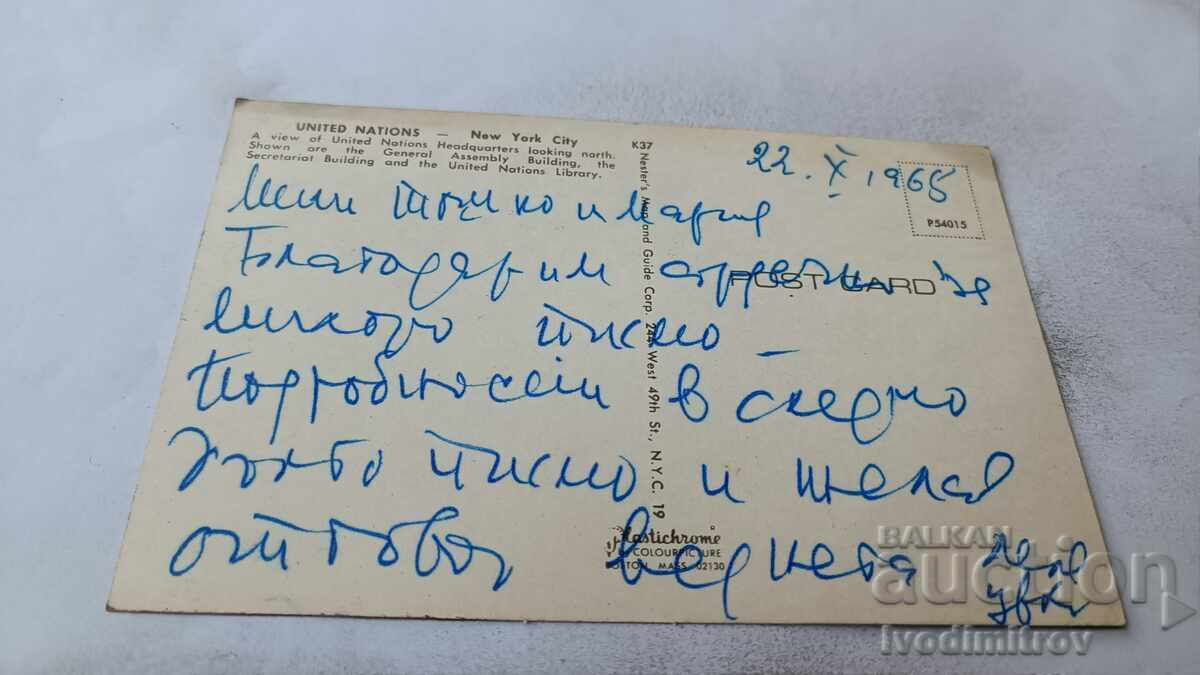 UNITED NATIONS — New York City
A view of United Nations Headquarters looking north.
Shown are the General Assembly Building, the
Secretariat Building and the United Nations Library.
K37
22. X. 1965
P54015
POST CARD
Nester's Map and Guide Corp. 244 West 49th St., N.Y.C. 19
Мили Тошко и Мария
Благодарим сърдечно за
милото писмо
Подробности в следно
писмо и желая
отговор веднага
Plastichrome
by COLOURPICTURE
BOSTON, MASS. 02130
BALKAN
auction
ivodimitrov